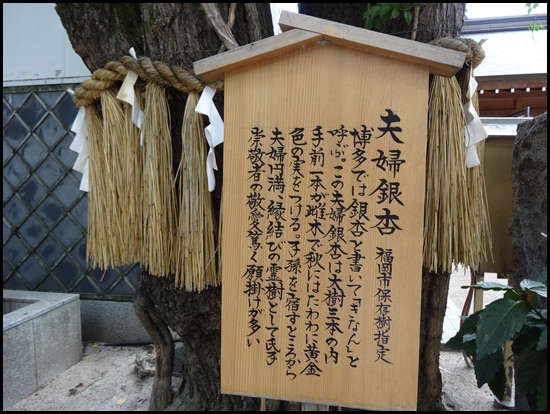 夫婦銀杏
福岡市保存樹指定
博多では銀杏と書いて「ぎなん」と
呼ぶ。この夫婦銀杏は大樹三本の内
手前一本が雌木で秋にはたわわに黄金
色の実をつける。子孫を宿すところから
夫婦円満、縁結びの霊樹として氏子
崇敬者の敬愛篤く願掛けが多い